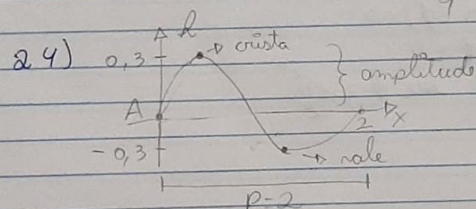 h
24) 0,3 → crista
} amplitude
A
2 x
- 0,3 → vale
P-2